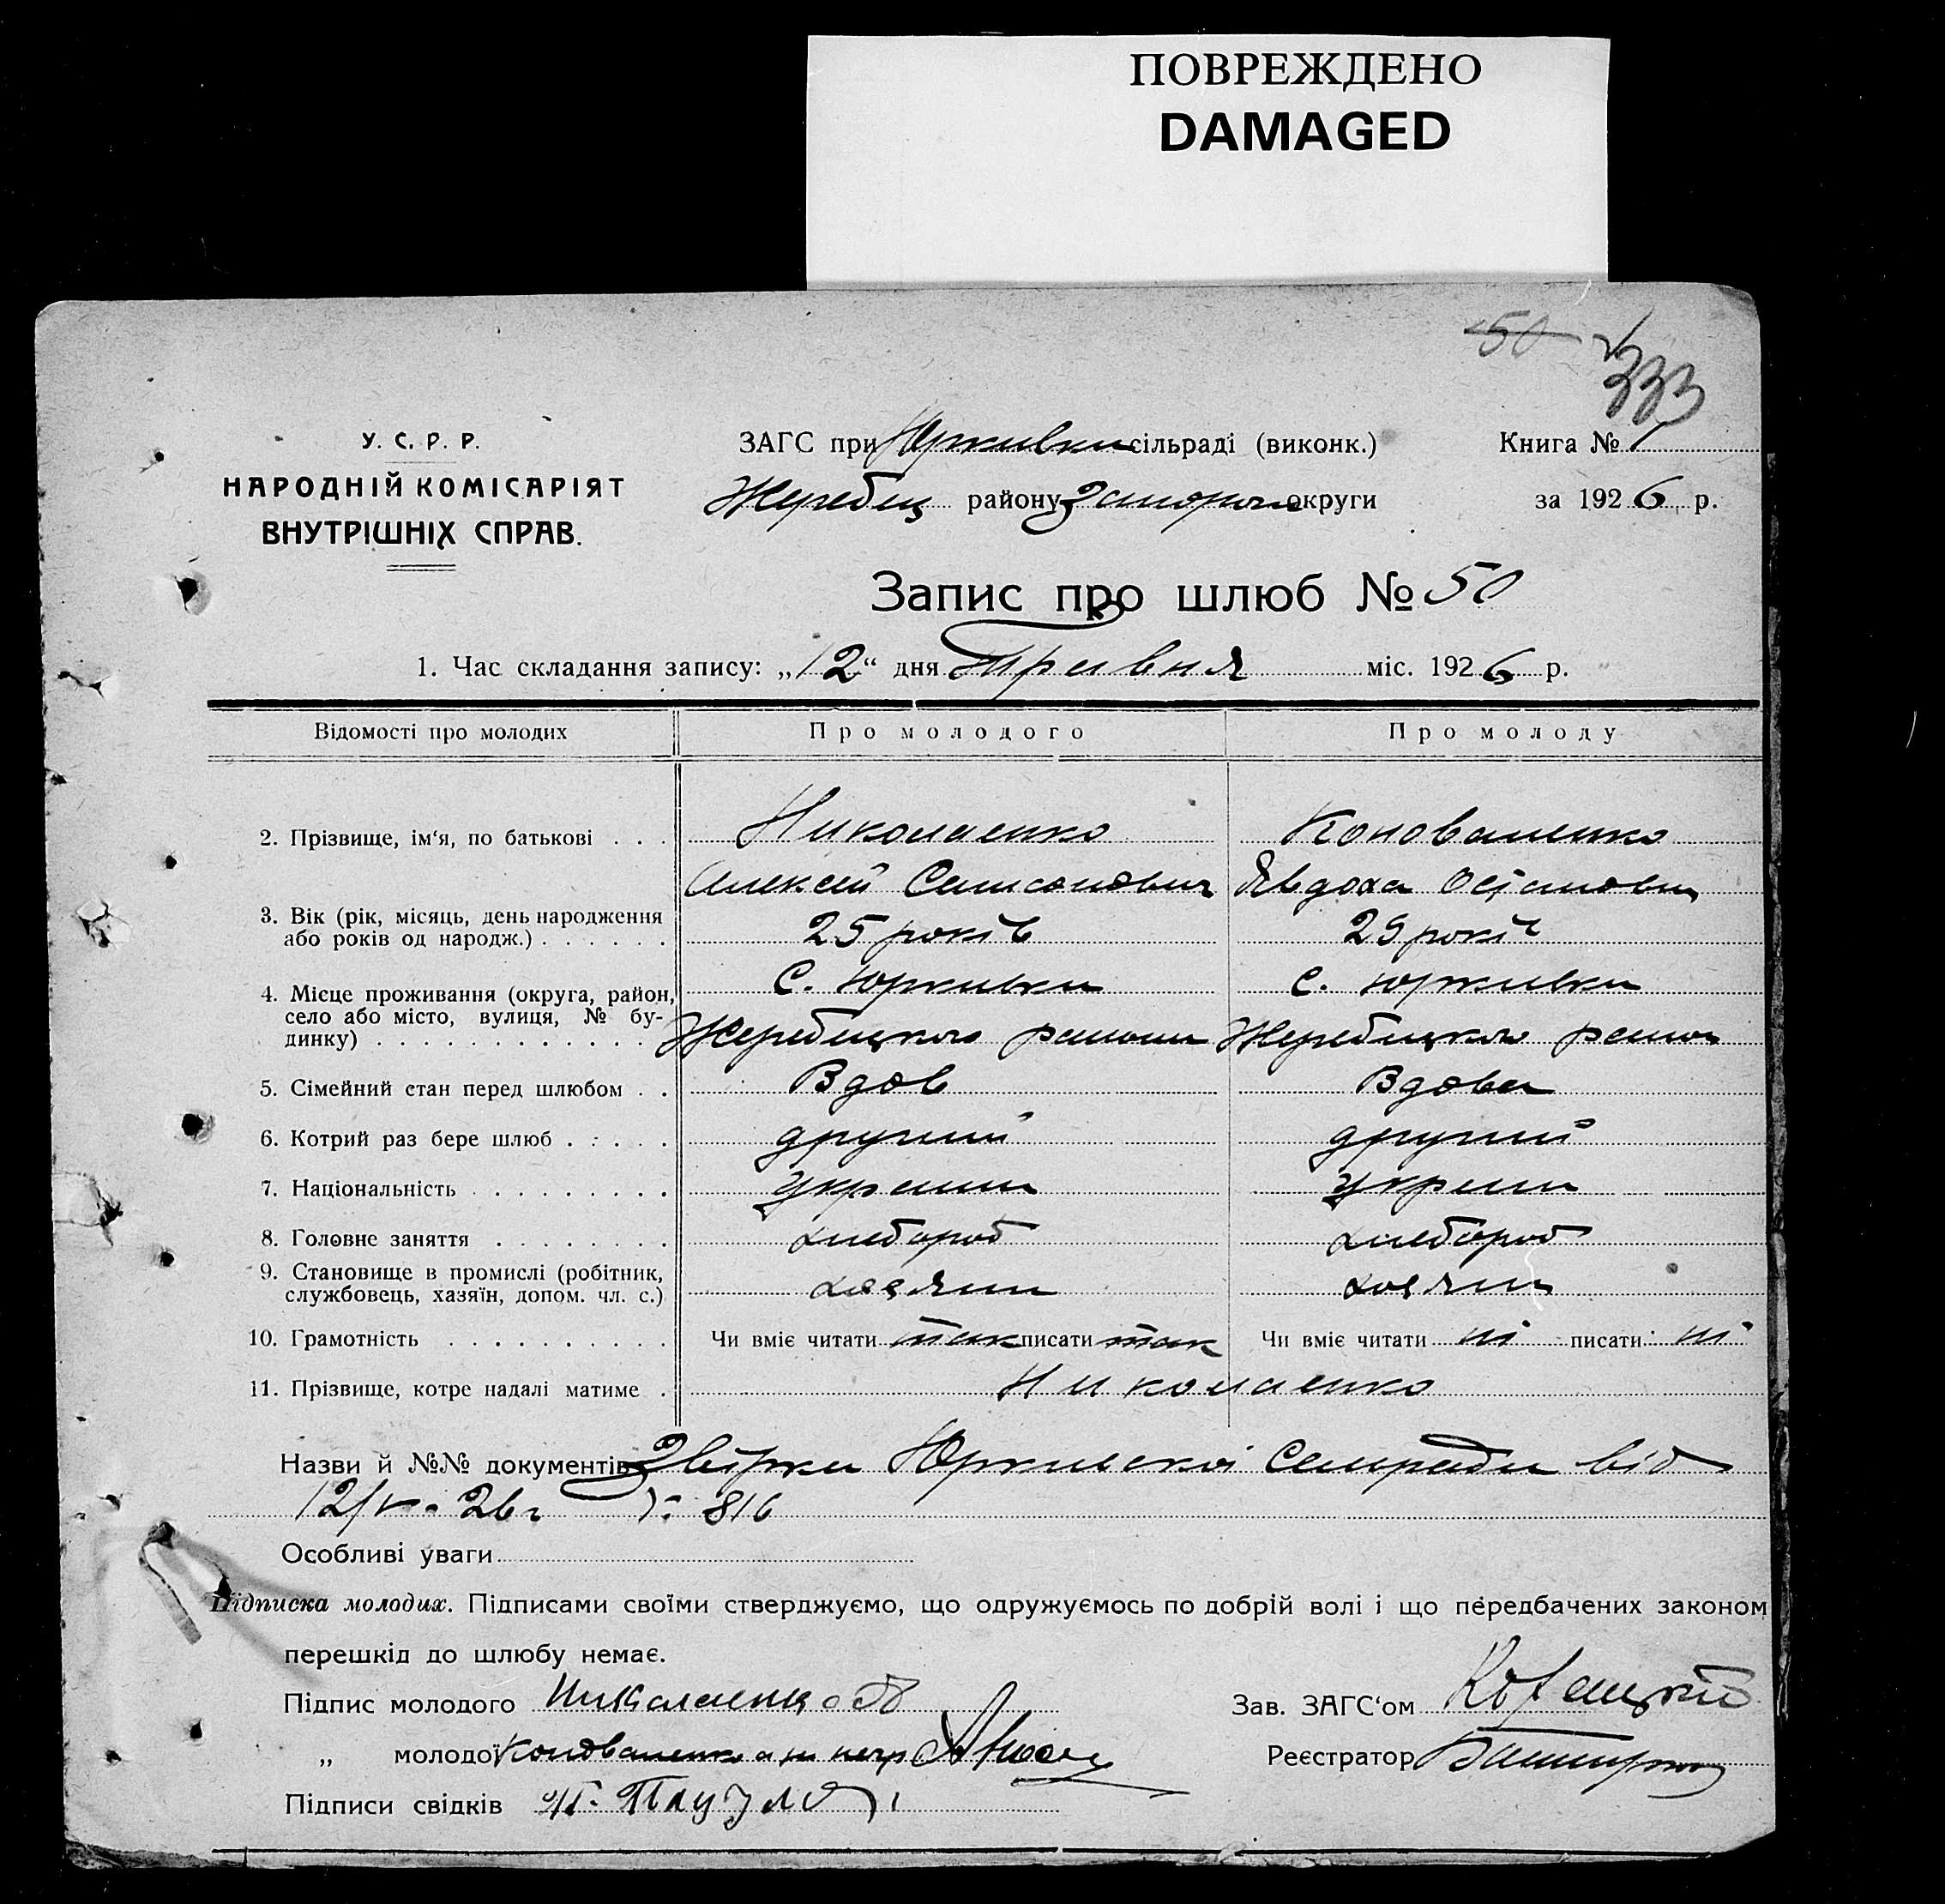 ПОВРЕЖДЕНО
DAMAGED
50 333
У. С. Р. Р.
НАРОДНІЙ КОМІСАРІЯТ
ВНУТРІШНІХ СПРАВ.
ЗАГС при Юркивки сільраді (виконк.)
Жеребец району Запорож округи
Книга № 1
за 1926 р.
Запис про шлюб № 50
1. Час складання запису: „12“ дня Травня міс. 1926 р.
Відомості про молодих Про молодого Про молоду
2. Прізвище, ім‘я, по батькові . . . Николаенко Коноваленко
Алексей Самсонович Явдоха
3. Вік (рік, місяць, день народження
або років од народж.) . . . . . . 25 років 25 років
4. Місце проживання (округа, район, с. Юркивки с. Юркивки
село або місто, вулиця, № бу-
динку) . . . . . . . . . . . . . Жеребецкого района Жеребецкого район
5. Сімейний стан перед шлюбом . . Вдов Вдова
6. Котрий раз бере шлюб . . . . . другий другий
7. Національність . . . . . . . . . украин украин
8. Головне заняття . . . . . . . . хлебороб хлебороб
9. Становище в промислі (робітник,
службовець, хазяїн, допом. чл. с.) хозяин хозяин
10. Грамотність . . . . . . . . . . Чи вміє читати так писати так Чи вміє читати ні писати ні
11. Прізвище, котре надалі матиме . Николаенко
Назви й №№ документів Звірки Юркивскоі Сельради від
12/V-26г № 816
Особливі уваги
Підписка молодих. Підписами своїми стверджуємо, що одружуємось по добрій волі і що передбачених законом
перешкід до шлюбу немає.
Підпис молодого Николаенко
Зав. ЗАГС‘ом
„ молодої Коноваленко а за негр
Реєстратор
Підписи свідків